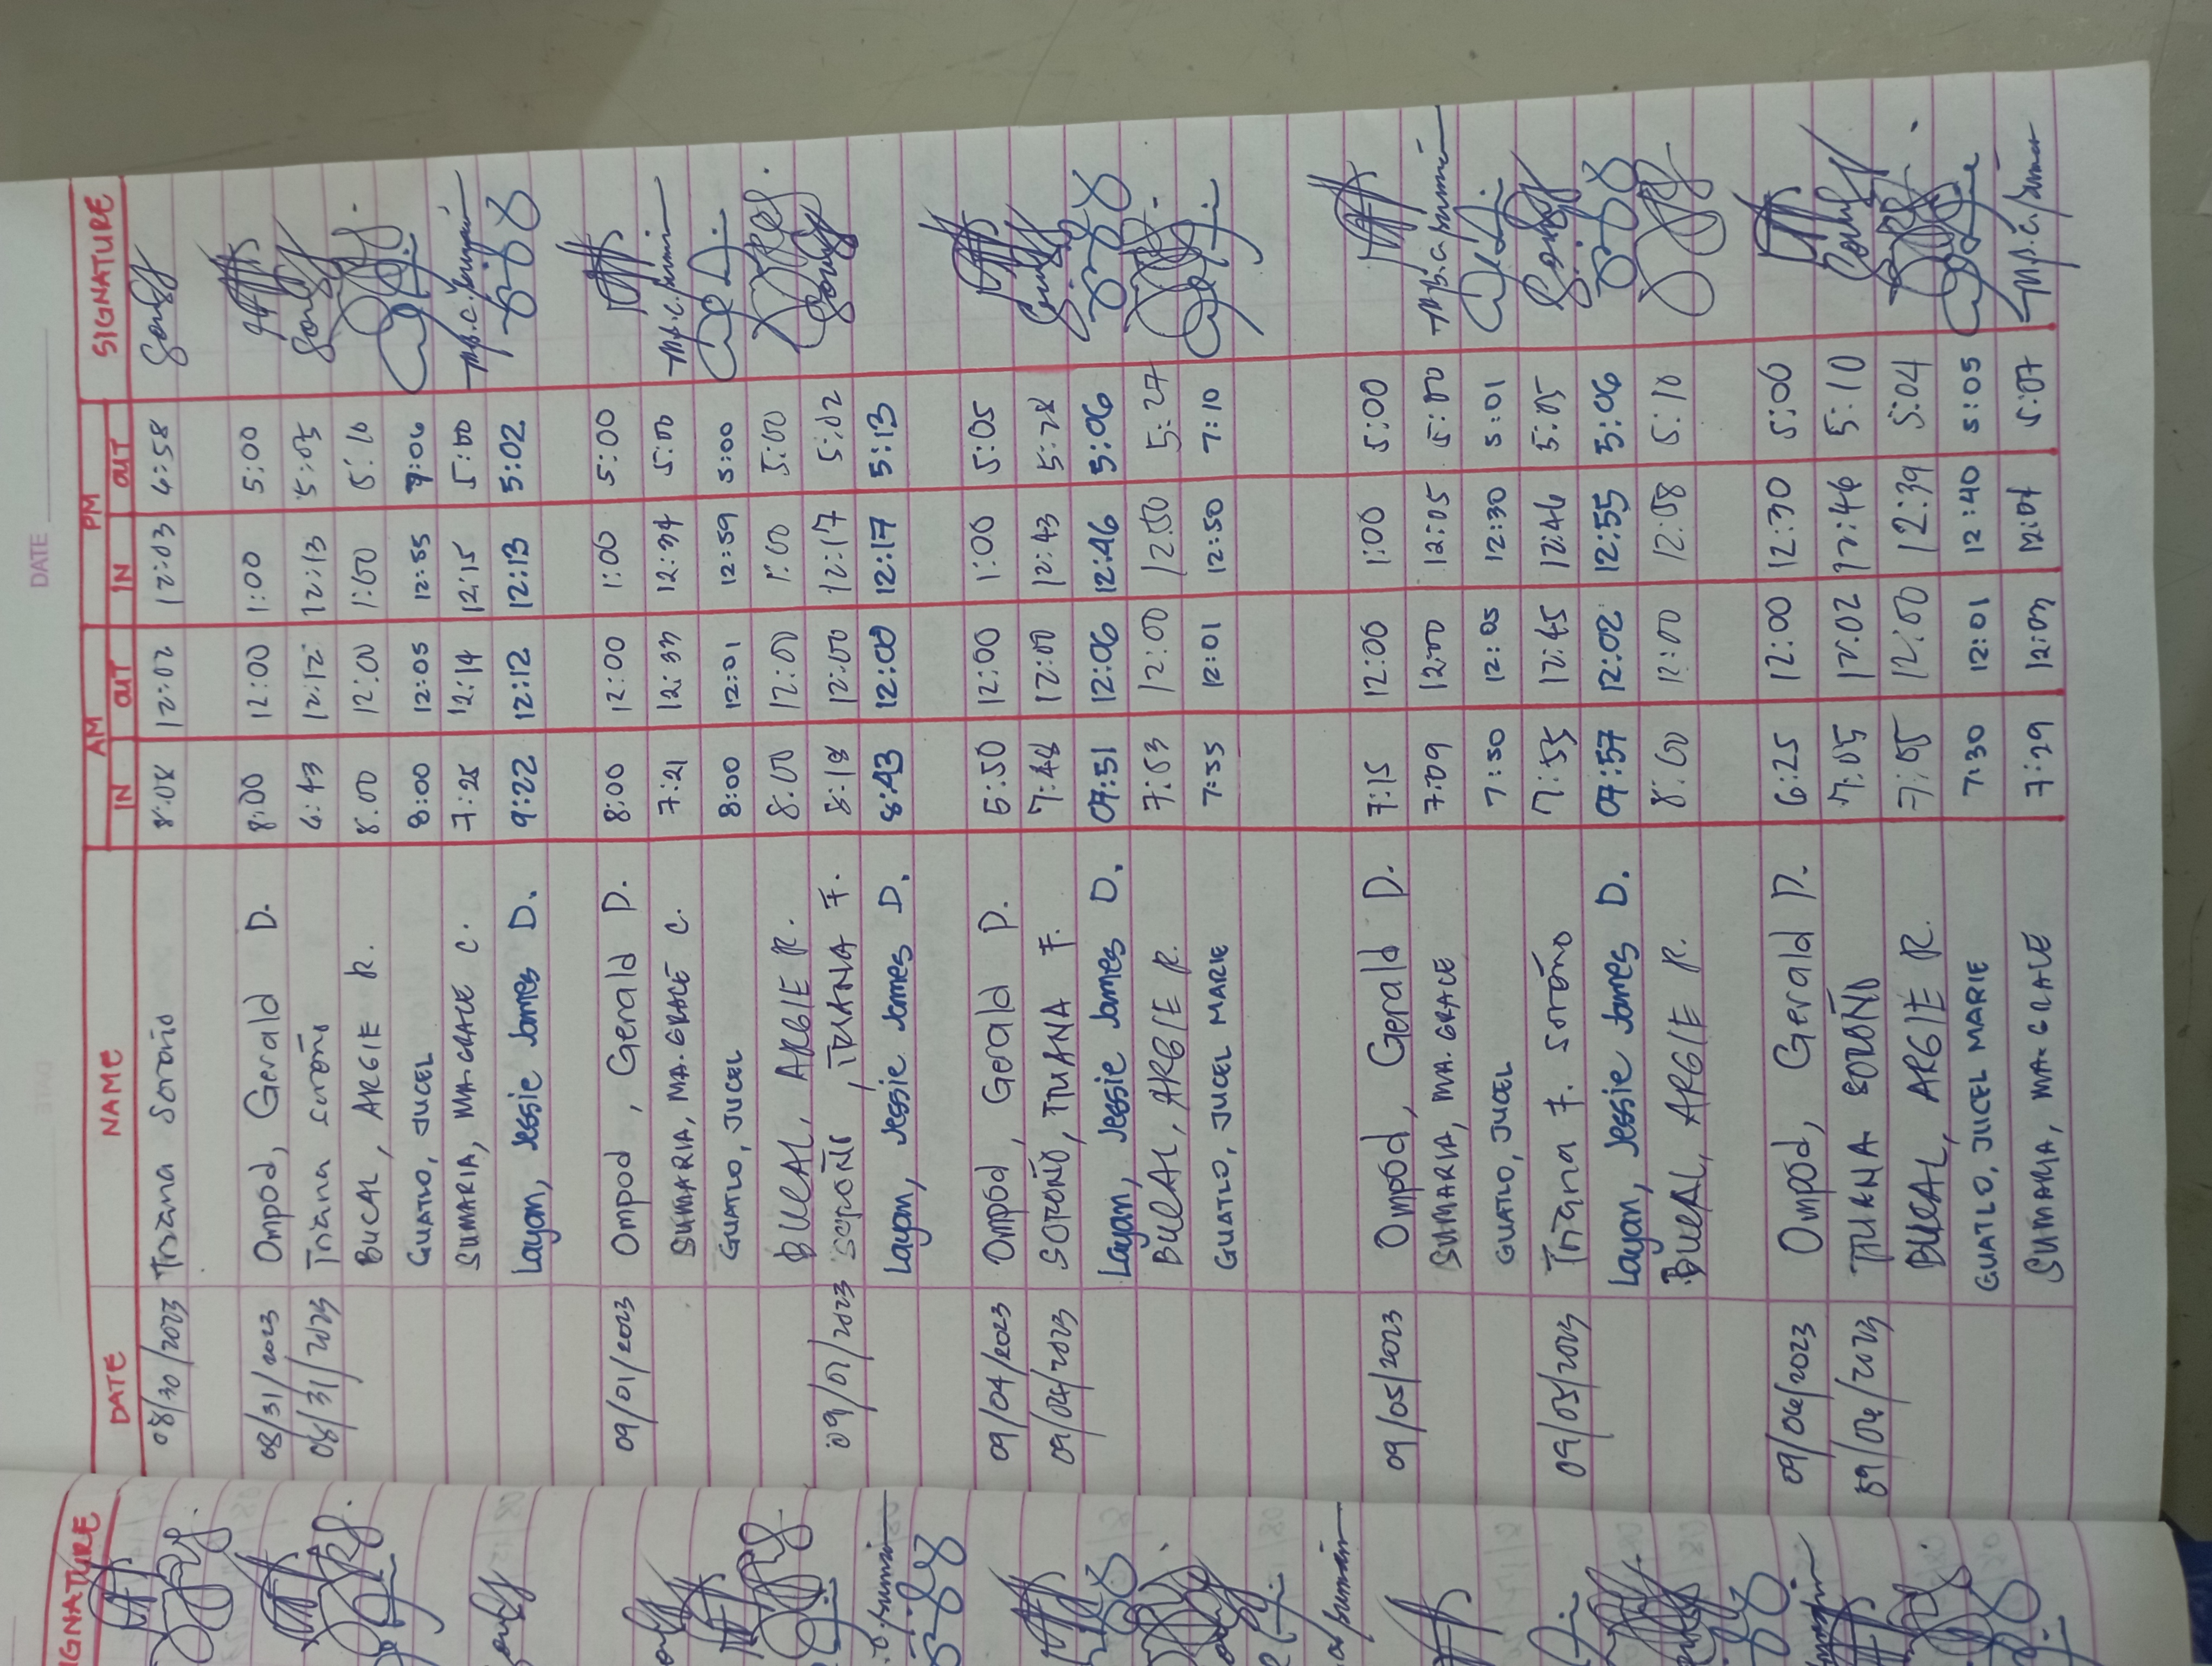 DATE
DATE NAME AM PM SIGNATURE
IN OUT IN OUT
08/30/2023 Triana Soroño 8:08 12:02 12:03 4:58
08/31/2023 Ompod, Gerald D. 8:00 12:00 1:00 5:00
08/31/2023 Triana Soroño 6:43 12:12 12:13 5:05
BUCAL, ARGIE R. 8:00 12:00 1:00 5:10
GUATLO, JUCEL 8:00 12:05 12:55 7:06
SUMARIA, MA. GRACE C. 7:25 12:14 12:15 5:00
Layan, Jessie James D. 9:22 12:12 12:13 5:02
09/01/2023 Ompod, Gerald D. 8:00 12:00 1:00 5:00
SUMARIA, MA. GRACE C. 7:21 12:33 12:34 5:00
GUATLO, JUCEL 8:00 12:01 12:59 5:00
BUCAL, ARGIE R. 8:00 12:00 1:00 5:00
09/01/2023 SOROÑO, TRIANA F. 8:18 12:00 12:17 5:02
Layan, Jessie James D. 8:43 12:00 12:17 5:13
09/04/2023 Ompod, Gerald D. 6:50 12:00 1:00 5:05
09/04/2023 SOROÑO, TRIANA F. 7:48 12:00 12:43 5:28
Layan, Jessie James D. 07:51 12:06 12:46 5:06
BUCAL, ARGIE R. 7:53 12:00 12:50 5:27
GUATLO, JUCEL MARIE 7:55 12:01 12:50 7:10
09/05/2023 Ompod, Gerald D. 7:15 12:00 1:00 5:00
SUMARIA, MA. GRACE 7:09 12:00 12:05 5:00
GUATLO, JUCEL 7:50 12:05 12:30 5:01
09/05/2023 Triana F. Soroño 7:55 12:45 12:46 5:05
Layan, Jessie James D. 07:57 12:02 12:55 5:06
BUCAL, ARGIE R. 8:00 12:00 12:58 5:10
09/06/2023 Ompod, Gerald D. 6:25 12:00 12:30 5:00
09/06/2023 TRIANA SOROÑO 7:05 12:02 12:46 5:10
BUCAL, ARGIE R. 7:55 12:00 12:39 5:04
GUATLO, JUCEL MARIE 7:30 12:01 12:40 5:05
SUMARIA, MA. GRACE 7:29 12:03 12:04 5:07
SIGNATURE